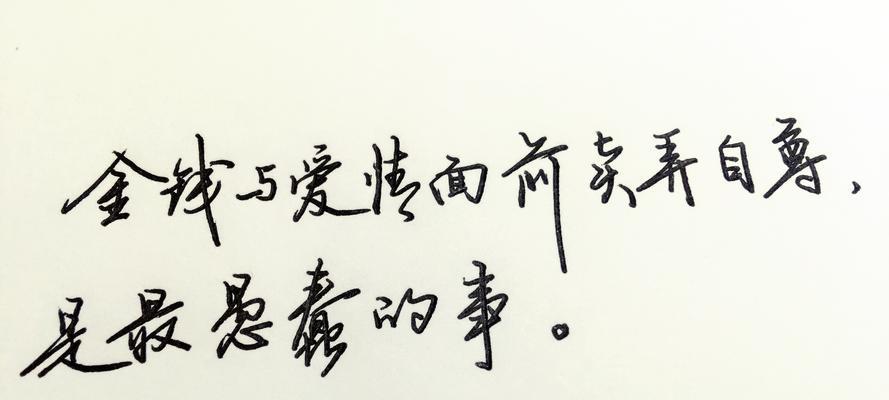 金钱与爱情面前卖弄自尊，
是最愚蠢的事。